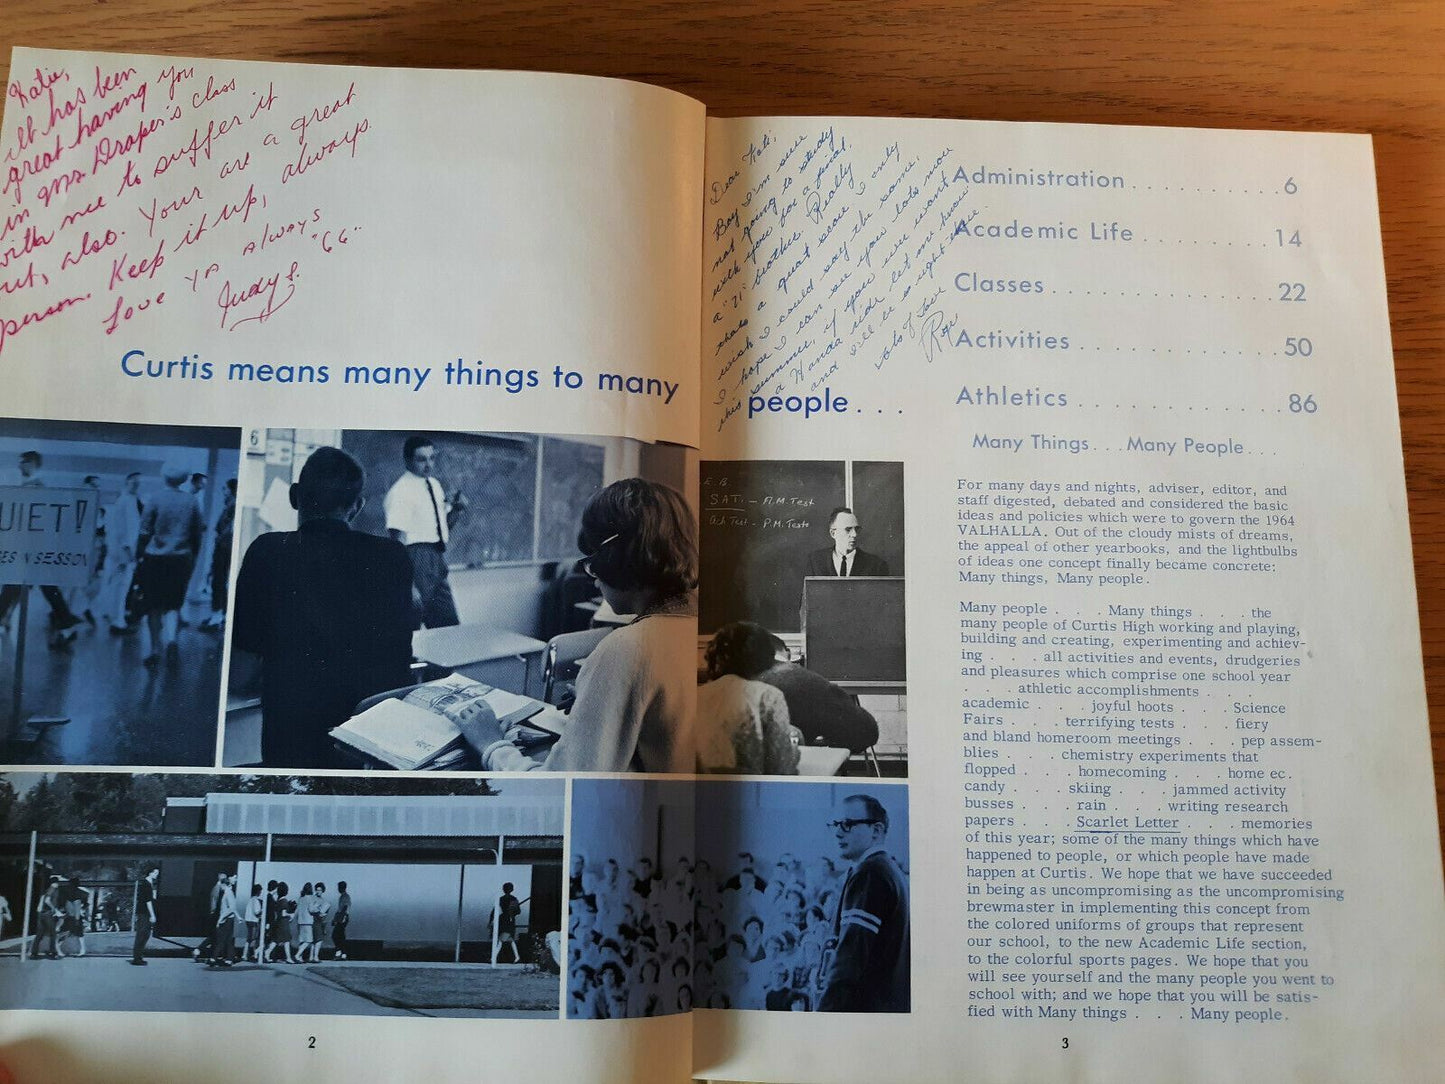 Katie,
It has been
great having you
in Mrs. Draper's class
with me to suffer it
out, also. Your are a great
person. Keep it up, always.
Love ya always
Judy S. "66"
Curtis means many things to many
QUIET!
IN SESSION
6
2
Dear Kati,
Boy I'm sure
not going to study
with you for a final.
a "71" brother. Really
that's a great score I only
wish I could say the same.
I hope I can see you lots more
this summer, if you ever want
a Honda ride let me know
and I'll be right there.
Lots of Love
people...
E.B.
SAT. - A.M. Test
Ach Test - P.M. Tests
Administration..........6
Academic Life........14
Classes..............22
Activities.............50
Athletics............86
Many Things...Many People...
For many days and nights, adviser, editor, and
staff digested, debated and considered the basic
ideas and policies which were to govern the 1964
VALHALLA. Out of the cloudy mists of dreams,
the appeal of other yearbooks, and the lightbulbs
of ideas one concept finally became concrete:
Many things, Many people.
Many people . . . Many things . . . the
many people of Curtis High working and playing,
building and creating, experimenting and achiev-
ing . . . all activities and events, drudgeries
and pleasures which comprise one school year
. . . athletic accomplishments . . .
academic . . . joyful hoots . . . Science
Fairs . . . terrifying tests . . . fiery
and bland homeroom meetings . . . pep assem-
blies . . . chemistry experiments that
flopped . . . homecoming . . . home ec.
candy . . . skiing . . . jammed activity
busses . . . rain . . . writing research
papers . . . Scarlet Letter . . . memories
of this year; some of the many things which have
happened to people, or which people have made
happen at Curtis. We hope that we have succeeded
in being as uncompromising as the uncompromising
brewmaster in implementing this concept from
the colored uniforms of groups that represent
our school, to the new Academic Life section,
to the colorful sports pages. We hope that you
will see yourself and the many people you went to
school with; and we hope that you will be satis-
fied with Many things . . . Many people.
3